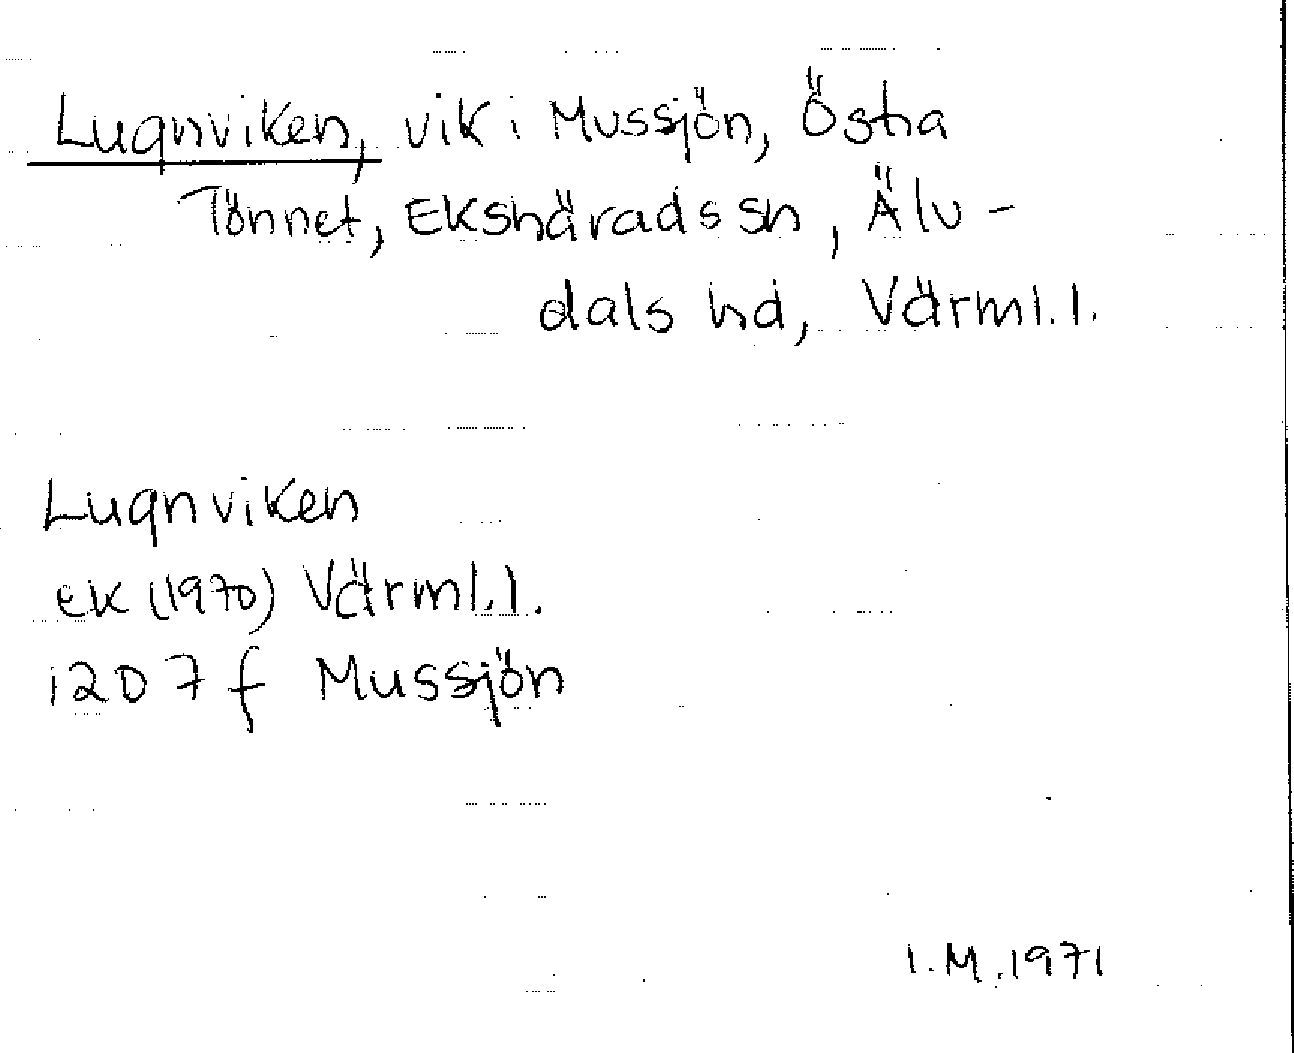 Lugnviken, vik i Mussjön, Östra
Tönnet, Ekshärads sn, Älv-
dals hd, Värml. l.
Lugnviken
ek (1970) Värml. l.
12D 7 f Mussjön
I.M. 1971